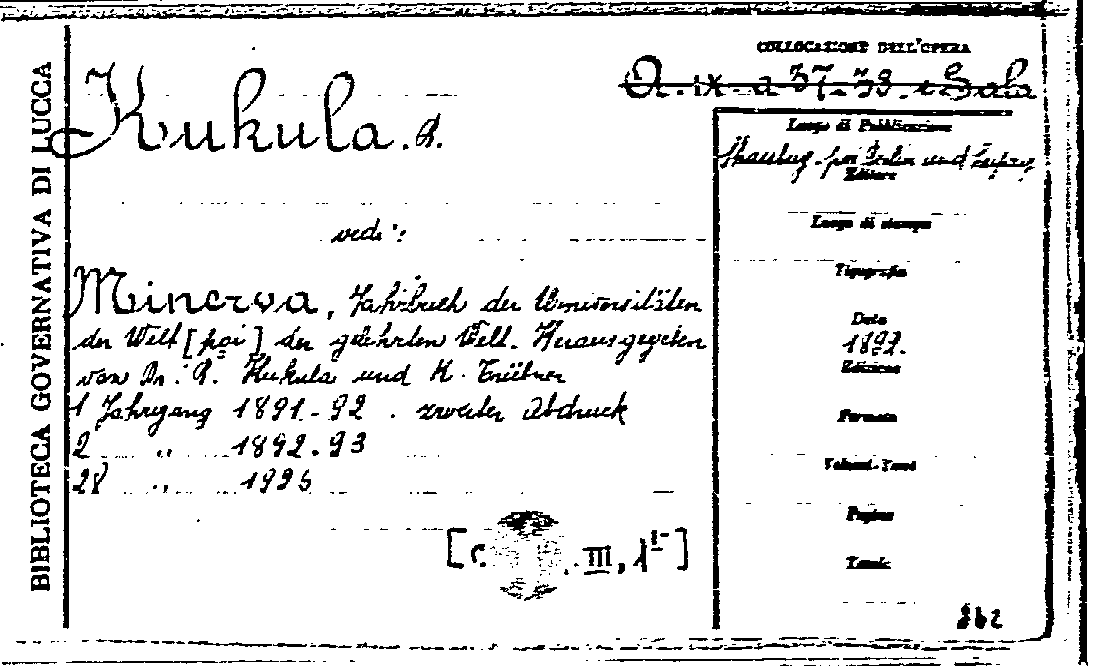 BIBLIOTECA GOVERNATIVA DI LUCCA
COLLOCAZIONE DELL'OPERA
A. IX. a 37.-38. Sala
Kukula. R.
vedi:
Minerva, Jahrbuch der Universitäten
der Welt [poi] der gelehrten Welt. Herausgegeben
von Dr. R. Kukula und K. Trübner
1 Jahrgang 1891-92. zweiter Abdruck
2 " 1892-93
28 " 1926
III, 1
Luogo di Pubblicazione
poi Berlin und
Editore
Luogo di stampa
Tipografia
Data
1892.
Edizione
Formato
Volumi-Tomi
Pagine
Tavole
862